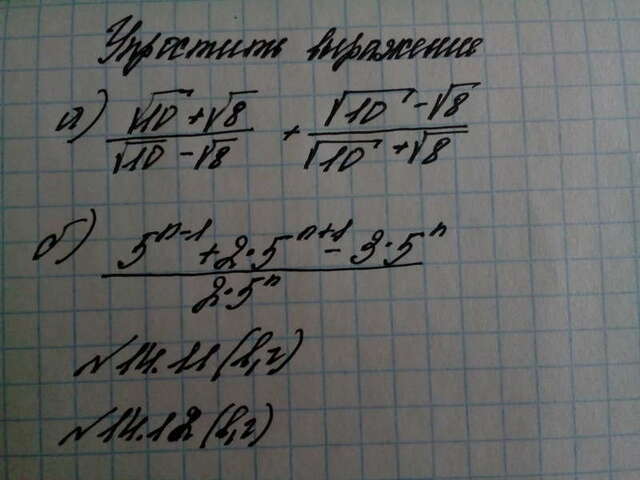 Упростить выражение
а) (√10 + √8)/(√10 - √8) + (√10 - √8)/(√10 + √8)
б) (5ⁿ⁻¹ + 2·5ⁿ⁺¹ - 3·5ⁿ)/(2·5ⁿ)
№14.11 (в,г)
№14.12 (в,г)